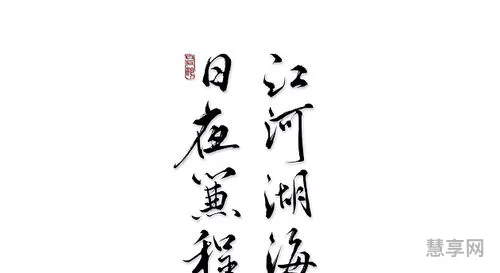 江河湖海
日夜兼程
慧享网